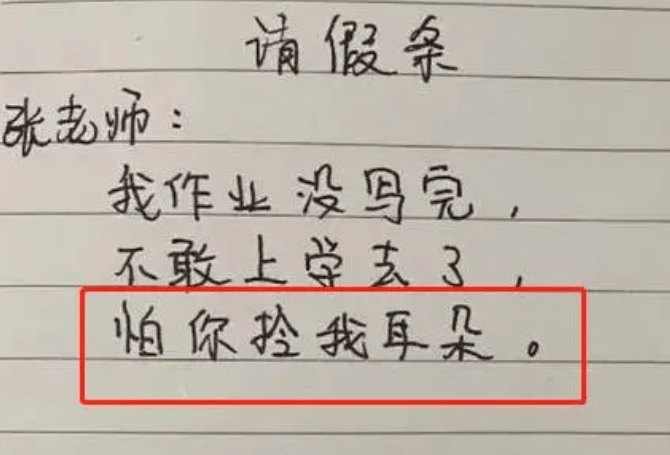 请假条
张老师：
我作业没写完，
不敢上学去了，
怕你拴我耳朵。